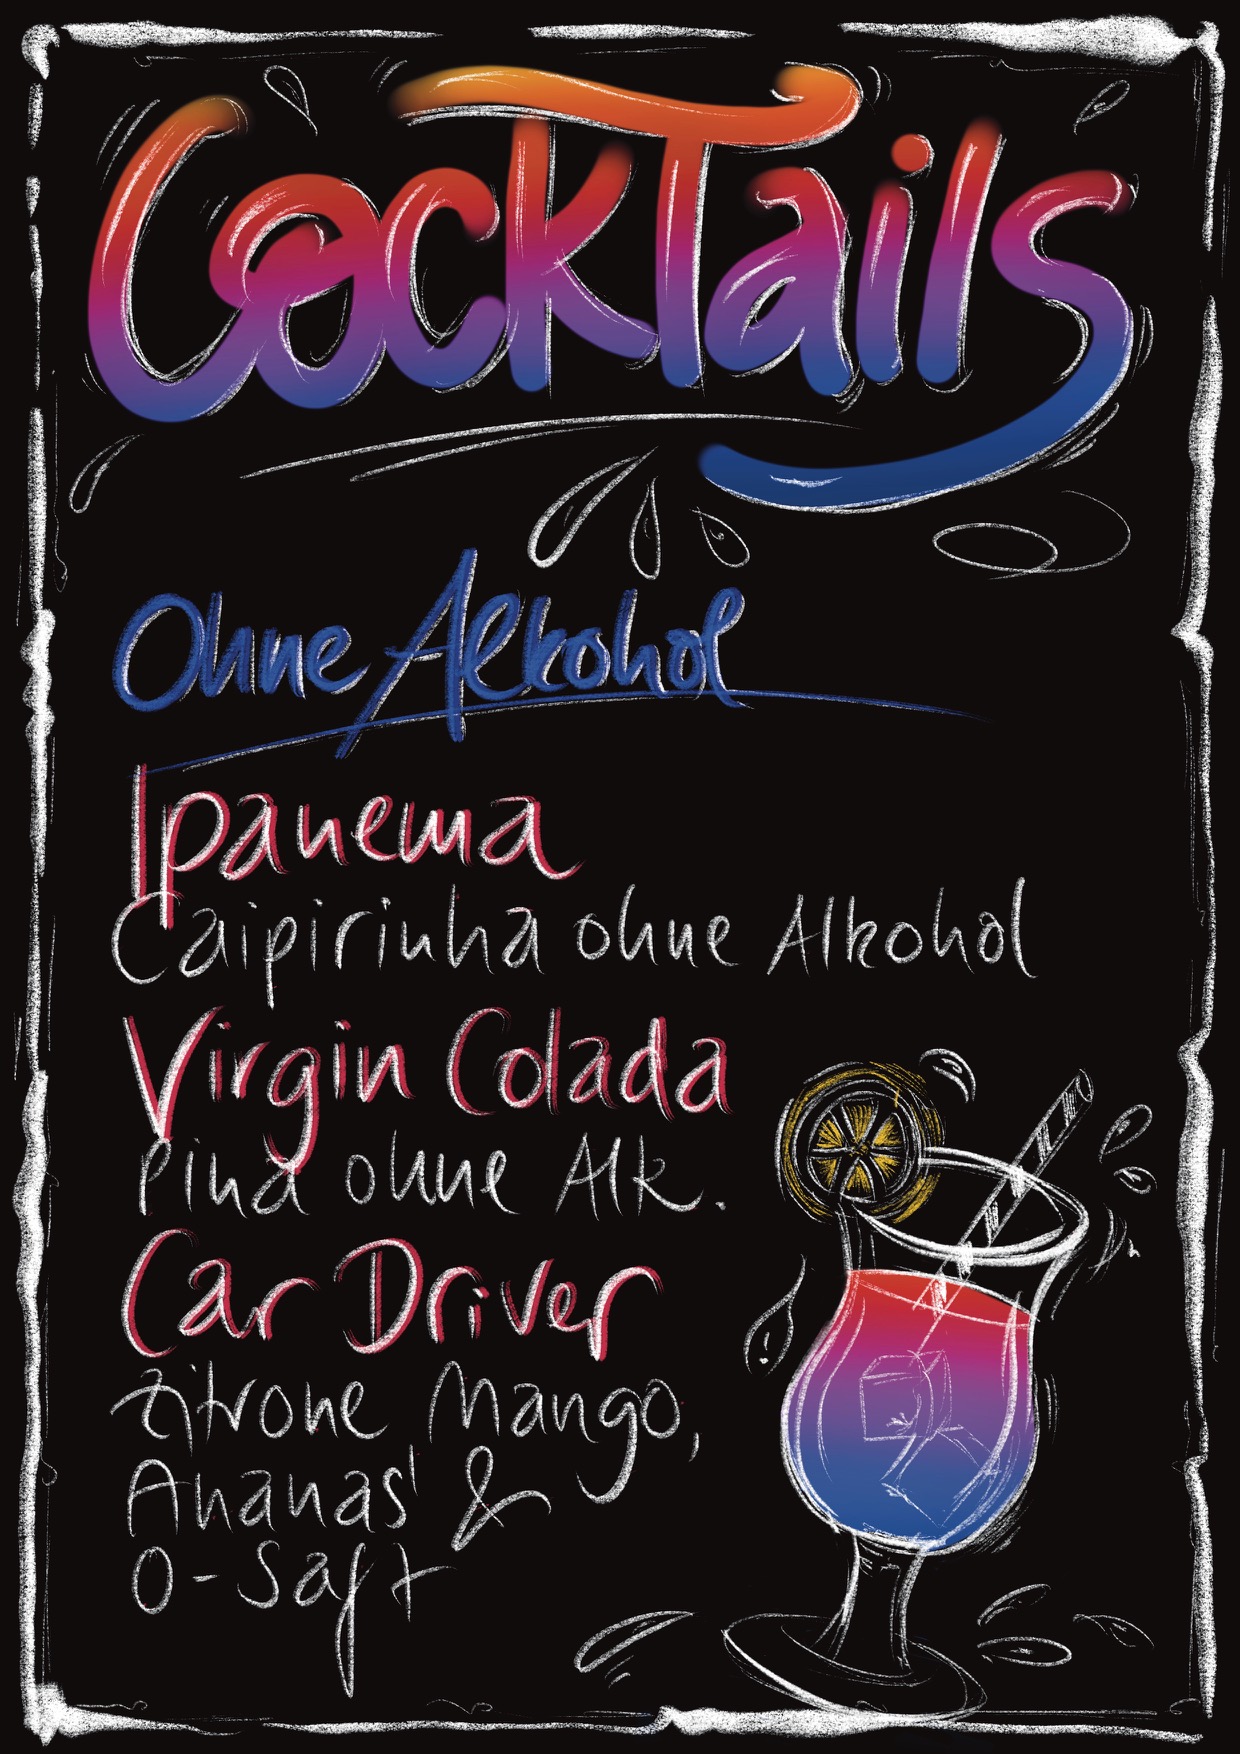 CockTails
Ohne Alkohol
Ipanema
Caipirinha ohne Alkohol
Virgin Colada
Pina ohne Alk.
Car Driver
Zitrone Mango,
Ananas' &
O-Saft